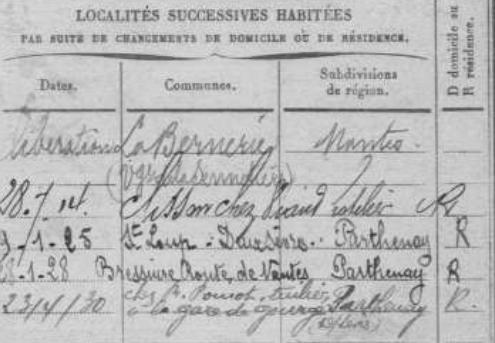 LOCALITÉS SUCCESSIVES HABITÉES
PAR SUITE DE CHANGEMENTS DE DOMICILE OU DE RÉSIDENCE.
D domicile ou
R résidence.
Dates. Communes. Subdivisions
de région.
Libération La Bernerie Nantes
28.7.14. Clisson chez R
9-1-25 St Loup - Deux Sèvres. Parthenay R
28-1-28 Bressuire Route de Nantes Parthenay R
23/4/30 chez Mr
à la gare de Parthenay R.
(D/Sens)